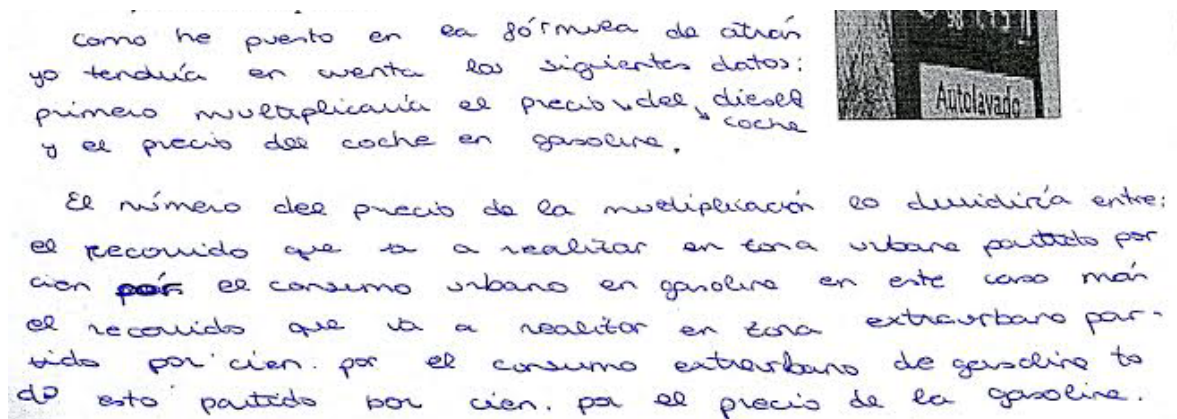 como he puesto en la fórmula de atrás
yo tendría en cuenta los siguientes datos:
primero multiplicaría el precio del diesel
coche
y el precio del coche en gasolina.
Autolavado
El número del precio de la multiplicación lo dividiría entre:
el recorrido que va a realizar en zona urbana partido por
cien por el consumo urbano en gasolina en este caso más
el recorrido que va a realizar en zona extraurbano par-
tido por cien. por el consumo extraurbano de gasolina to
do esto partido por cien. por el precio de la gasolina.